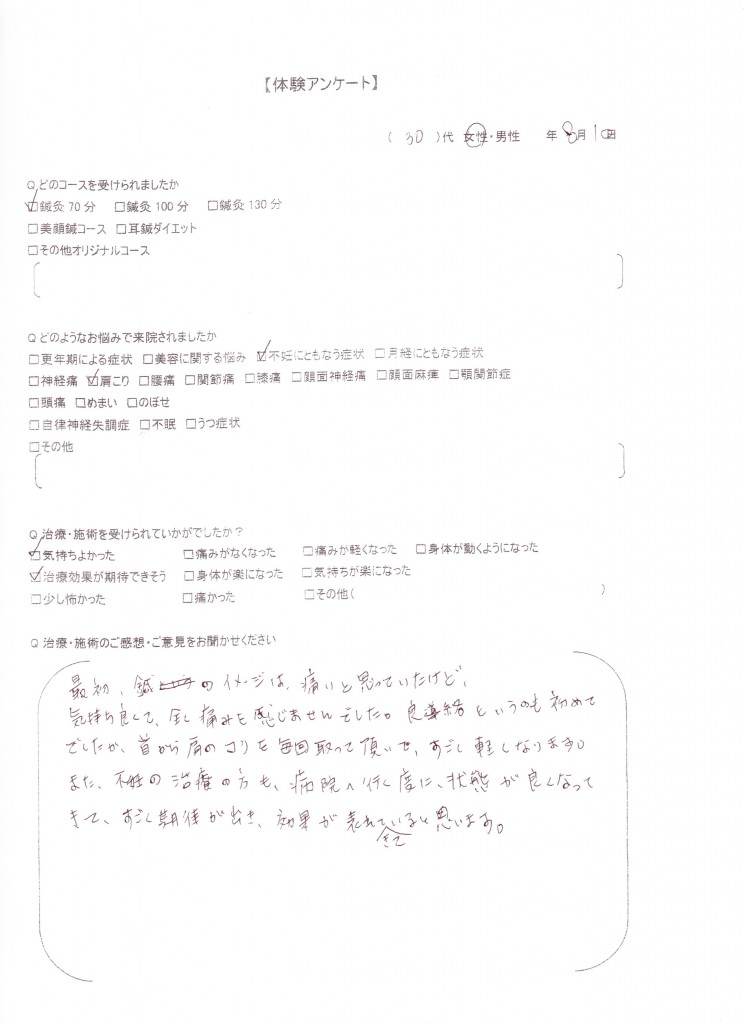 【体験アンケート】
( 30 )代 女性・男性 年 8月10日
Q どのコースを受けられましたか
☑鍼灸 70 分 □鍼灸 100 分 □鍼灸 130 分
□美顔鍼コース □耳鍼ダイエット
□その他オリジナルコース
Q どのようなお悩みで来院されましたか
□更年期による症状 □美容に関する悩み ☑不妊にともなう症状 □月経にともなう症状
□神経痛 ☑肩こり □腰痛 □関節痛 □膝痛 □顔面神経痛 □顔面麻痺 □顎関節症
□頭痛 □めまい □のぼせ
□自律神経失調症 □不眠 □うつ症状
□その他
Q 治療・施術を受けられていかがでしたか？
☑気持ちよかった □痛みがなくなった □痛みが軽くなった □身体が動くようになった
☑治療効果が期待できそう □身体が楽になった □気持ちが楽になった
□少し怖かった □痛かった □その他( )
Q 治療・施術のご感想・ご意見をお聞かせください
最初、鍼のイメージは、痛いと思っていたけど、
気持ち良くて、全く痛みを感じませんでした。良導絡というのも初めて
でしたが、首から肩のコリを毎回取って頂いて、すごく軽くなります。
また、不妊の治療の方も、病院へ行く度に、状態が良くなって
きて、すごく期待が出き、効果が表れてきていると思います。